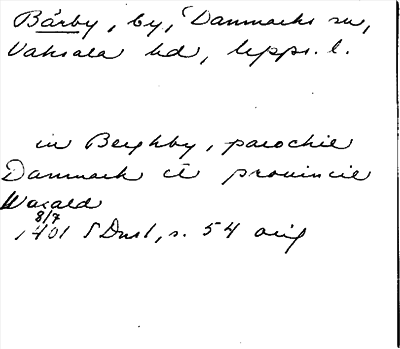 Bärby, by, Danmarks sn,
Vaksala hd, Upps. l.
in Berghby, parochie
Danmark et prouincie
Waxald
8/7
1401 SDns 1, s. 54 orig